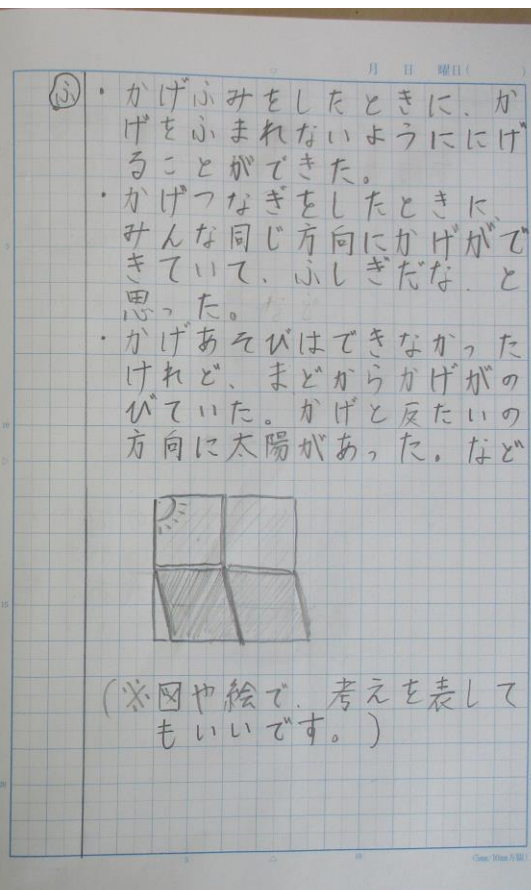 月 日 曜日( )
ふ ・かげふみをしたときに、か
げをふまれないようににげ
ることができた。
・かげつなぎをしたときに、
みんな同じ方向にかげがで
きていて、ふしぎだな、と
思った。
・かげあそびはできなかった
けれど、まどからかげがの
びていた。かげと反たいの
方向に太陽があった。など
(※図や絵で、考えを表して
もいいです。)